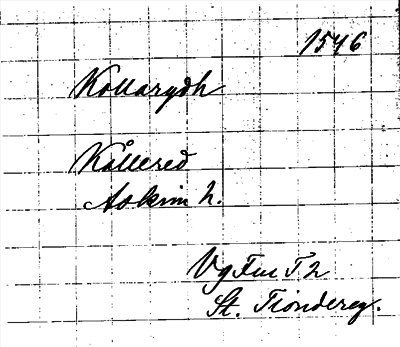 1546
Kollarydh
Kållered
Askim h.
Vg Fru T 2
St. Tiondereg.